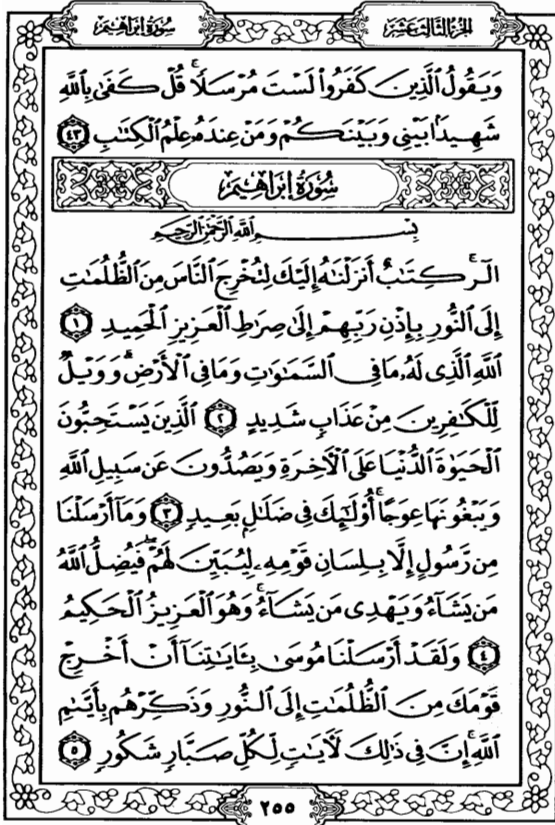 سُورَةُ إِبْرَاهِيم
الجُزْءُ الثَّالِثَ عَشَرَ
وَيَقُولُ ٱلَّذِينَ كَفَرُواْ لَسْتَ مُرْسَلًاۚ قُلْ كَفَىٰ بِٱللَّهِ
شَهِيدَۢا بَيْنِي وَبَيْنَكُمْ وَمَنْ عِندَهُۥ عِلْمُ ٱلْكِتَٰبِ ٤٣
سُورَةُ إِبْرَاهِيم
بِسْمِ ٱللَّهِ ٱلرَّحْمَٰنِ ٱلرَّحِيمِ
الٓرۚ كِتَٰبٌ أَنزَلْنَٰهُ إِلَيْكَ لِتُخْرِجَ ٱلنَّاسَ مِنَ ٱلظُّلُمَٰتِ
إِلَى ٱلنُّورِ بِإِذْنِ رَبِّهِمْ إِلَىٰ صِرَٰطِ ٱلْعَزِيزِ ٱلْحَمِيدِ ١
ٱللَّهِ ٱلَّذِي لَهُۥ مَا فِي ٱلسَّمَٰوَٰتِ وَمَا فِي ٱلْأَرْضِۗ وَوَيْلٌ
لِّلْكَٰفِرِينَ مِنْ عَذَابٍ شَدِيدٍ ٢ ٱلَّذِينَ يَسْتَحِبُّونَ
ٱلْحَيَوٰةَ ٱلدُّنْيَا عَلَى ٱلْأٓخِرَةِ وَيَصُدُّونَ عَن سَبِيلِ ٱللَّهِ
وَيَبْغُونَهَا عِوَجًاۚ أُوْلَٰٓئِكَ فِي ضَلَٰلِۭ بَعِيدٍ ٣ وَمَآ أَرْسَلْنَا
مِن رَّسُولٍ إِلَّا بِلِسَانِ قَوْمِهِۦ لِيُبَيِّنَ لَهُمْۖ فَيُضِلُّ ٱللَّهُ
مَن يَشَآءُ وَيَهْدِي مَن يَشَآءُۚ وَهُوَ ٱلْعَزِيزُ ٱلْحَكِيمُ
٤ وَلَقَدْ أَرْسَلْنَا مُوسَىٰ بِـَٔايَٰتِنَآ أَنْ أَخْرِجْ
قَوْمَكَ مِنَ ٱلظُّلُمَٰتِ إِلَى ٱلنُّورِ وَذَكِّرْهُم بِأَيَّىٰمِ
ٱللَّهِۚ إِنَّ فِي ذَٰلِكَ لَأٓيَٰتٍ لِّكُلِّ صَبَّارٍ شَكُورٍ ٥
٢٥٥